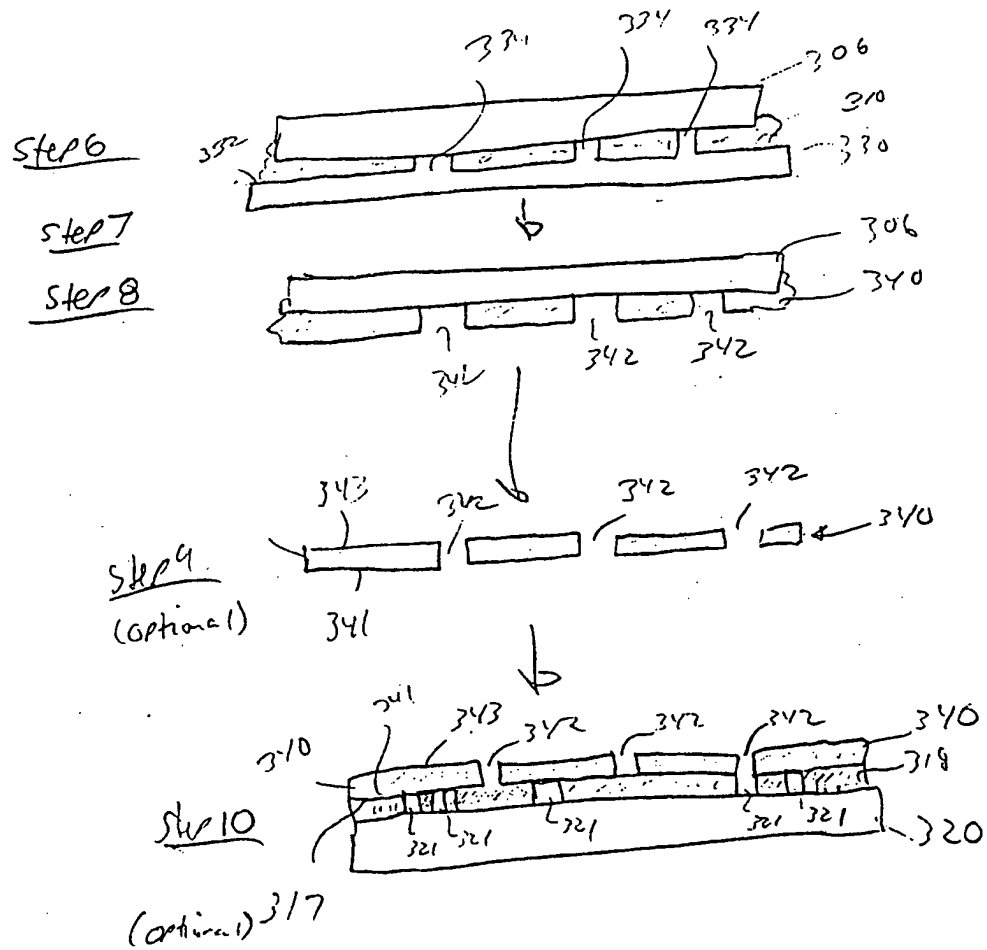 334
334
334
306
Step 6
332
310
330
Step 7
306
Step 8
340
342
342
342
343
342
342
342
340
Step 9
(optional)
341
341
343
342
342
342
340
340
318
Step 10
321
321
321
321
321
320
(optional)
317